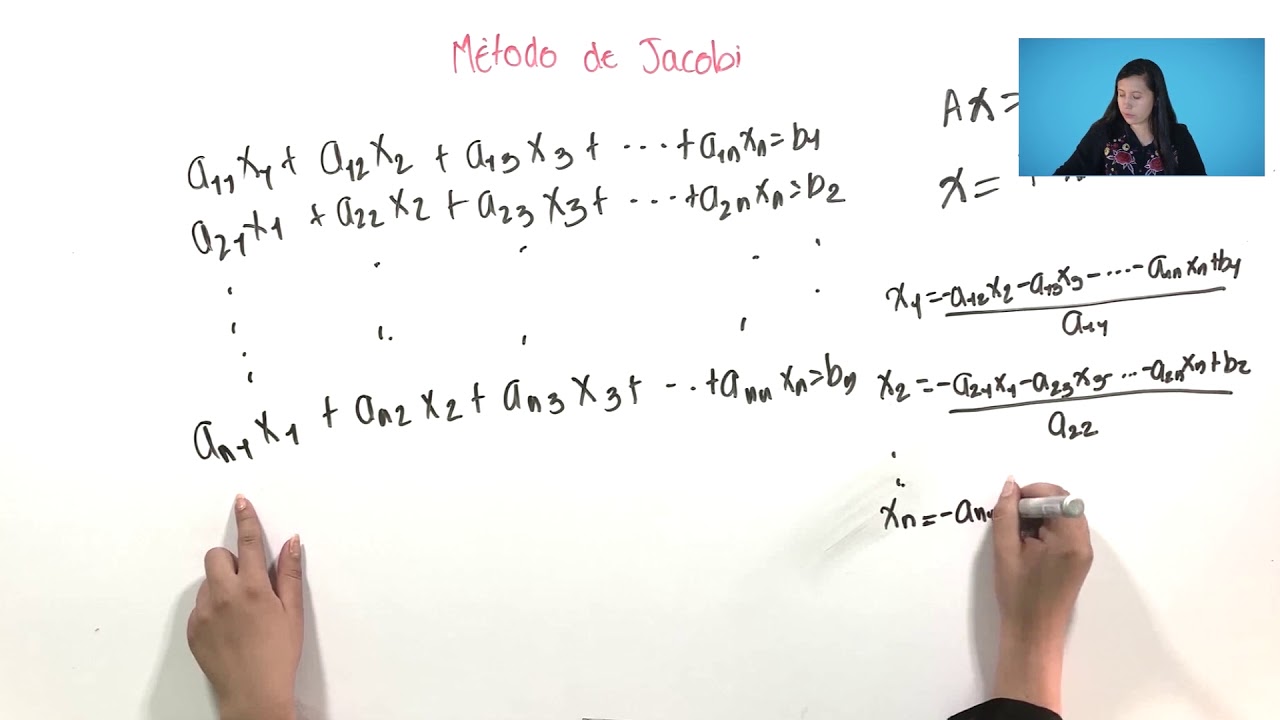 Método de Jacobi
a₁₁x₁ + a₁₂x₂ + a₁₃x₃ + ··· + a₁ₙxₙ = b₁
a₂₁x₁ + a₂₂x₂ + a₂₃x₃ + ··· + a₂ₙxₙ = b₂
aₙ₁x₁ + aₙ₂x₂ + aₙ₃x₃ + ··· + aₙₙxₙ = bₙ
Ax =
x =
x₁ = -a₁₂x₂ - a₁₃x₃ - ··· - a₁ₙxₙ + b₁
a₁₁
x₂ = -a₂₁x₁ - a₂₃x₃ - ··· - a₂ₙxₙ + b₂
a₂₂
xₙ = -aₙ₁